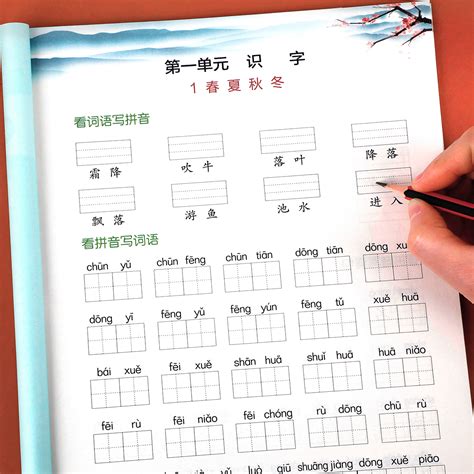 第一单元 识 字
1 春 夏 秋 冬
看词语写拼音
霜 降 吹 牛 落 叶 降 落
飘 落 游 鱼 池 水 进 入
看拼音写词语
chūn yǔ chūn fēng chūn tiān dōng tiān dōng
dōng yī fēng yǔ fēng yǔ fēng tǔ xuě huā
bái xuě fēi xuě shān huā shuǐ huā huā niǎo
fēi rù fēi niǎo rù dōng chū rù
shuāng jiàng